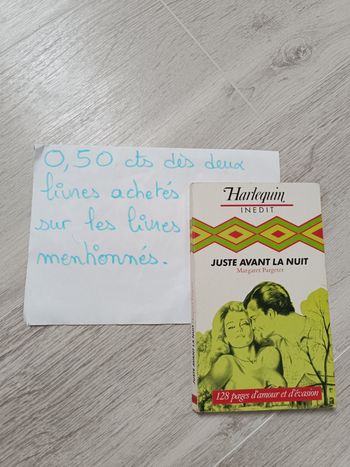 0,50 cts dès deux
livres achetés
sur les livres
mentionnés.
Harlequin
INEDIT
JUSTE AVANT LA NUIT
Margaret Pargeter
128 pages d'amour et d'évasion
JUSTE AVANT LA NUIT